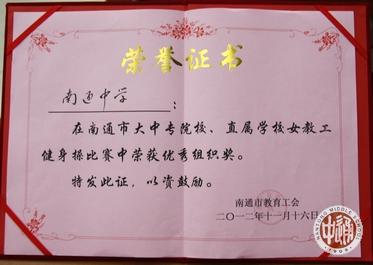 荣誉证书
南通中学：
在南通市大中专院校、直属学校女教工
健身操比赛中荣获优秀组织奖。
特发此证，以资鼓励。
南通市教育工会
二〇一二年十一月十六日
NANTONG MIDDLE SCHOOL